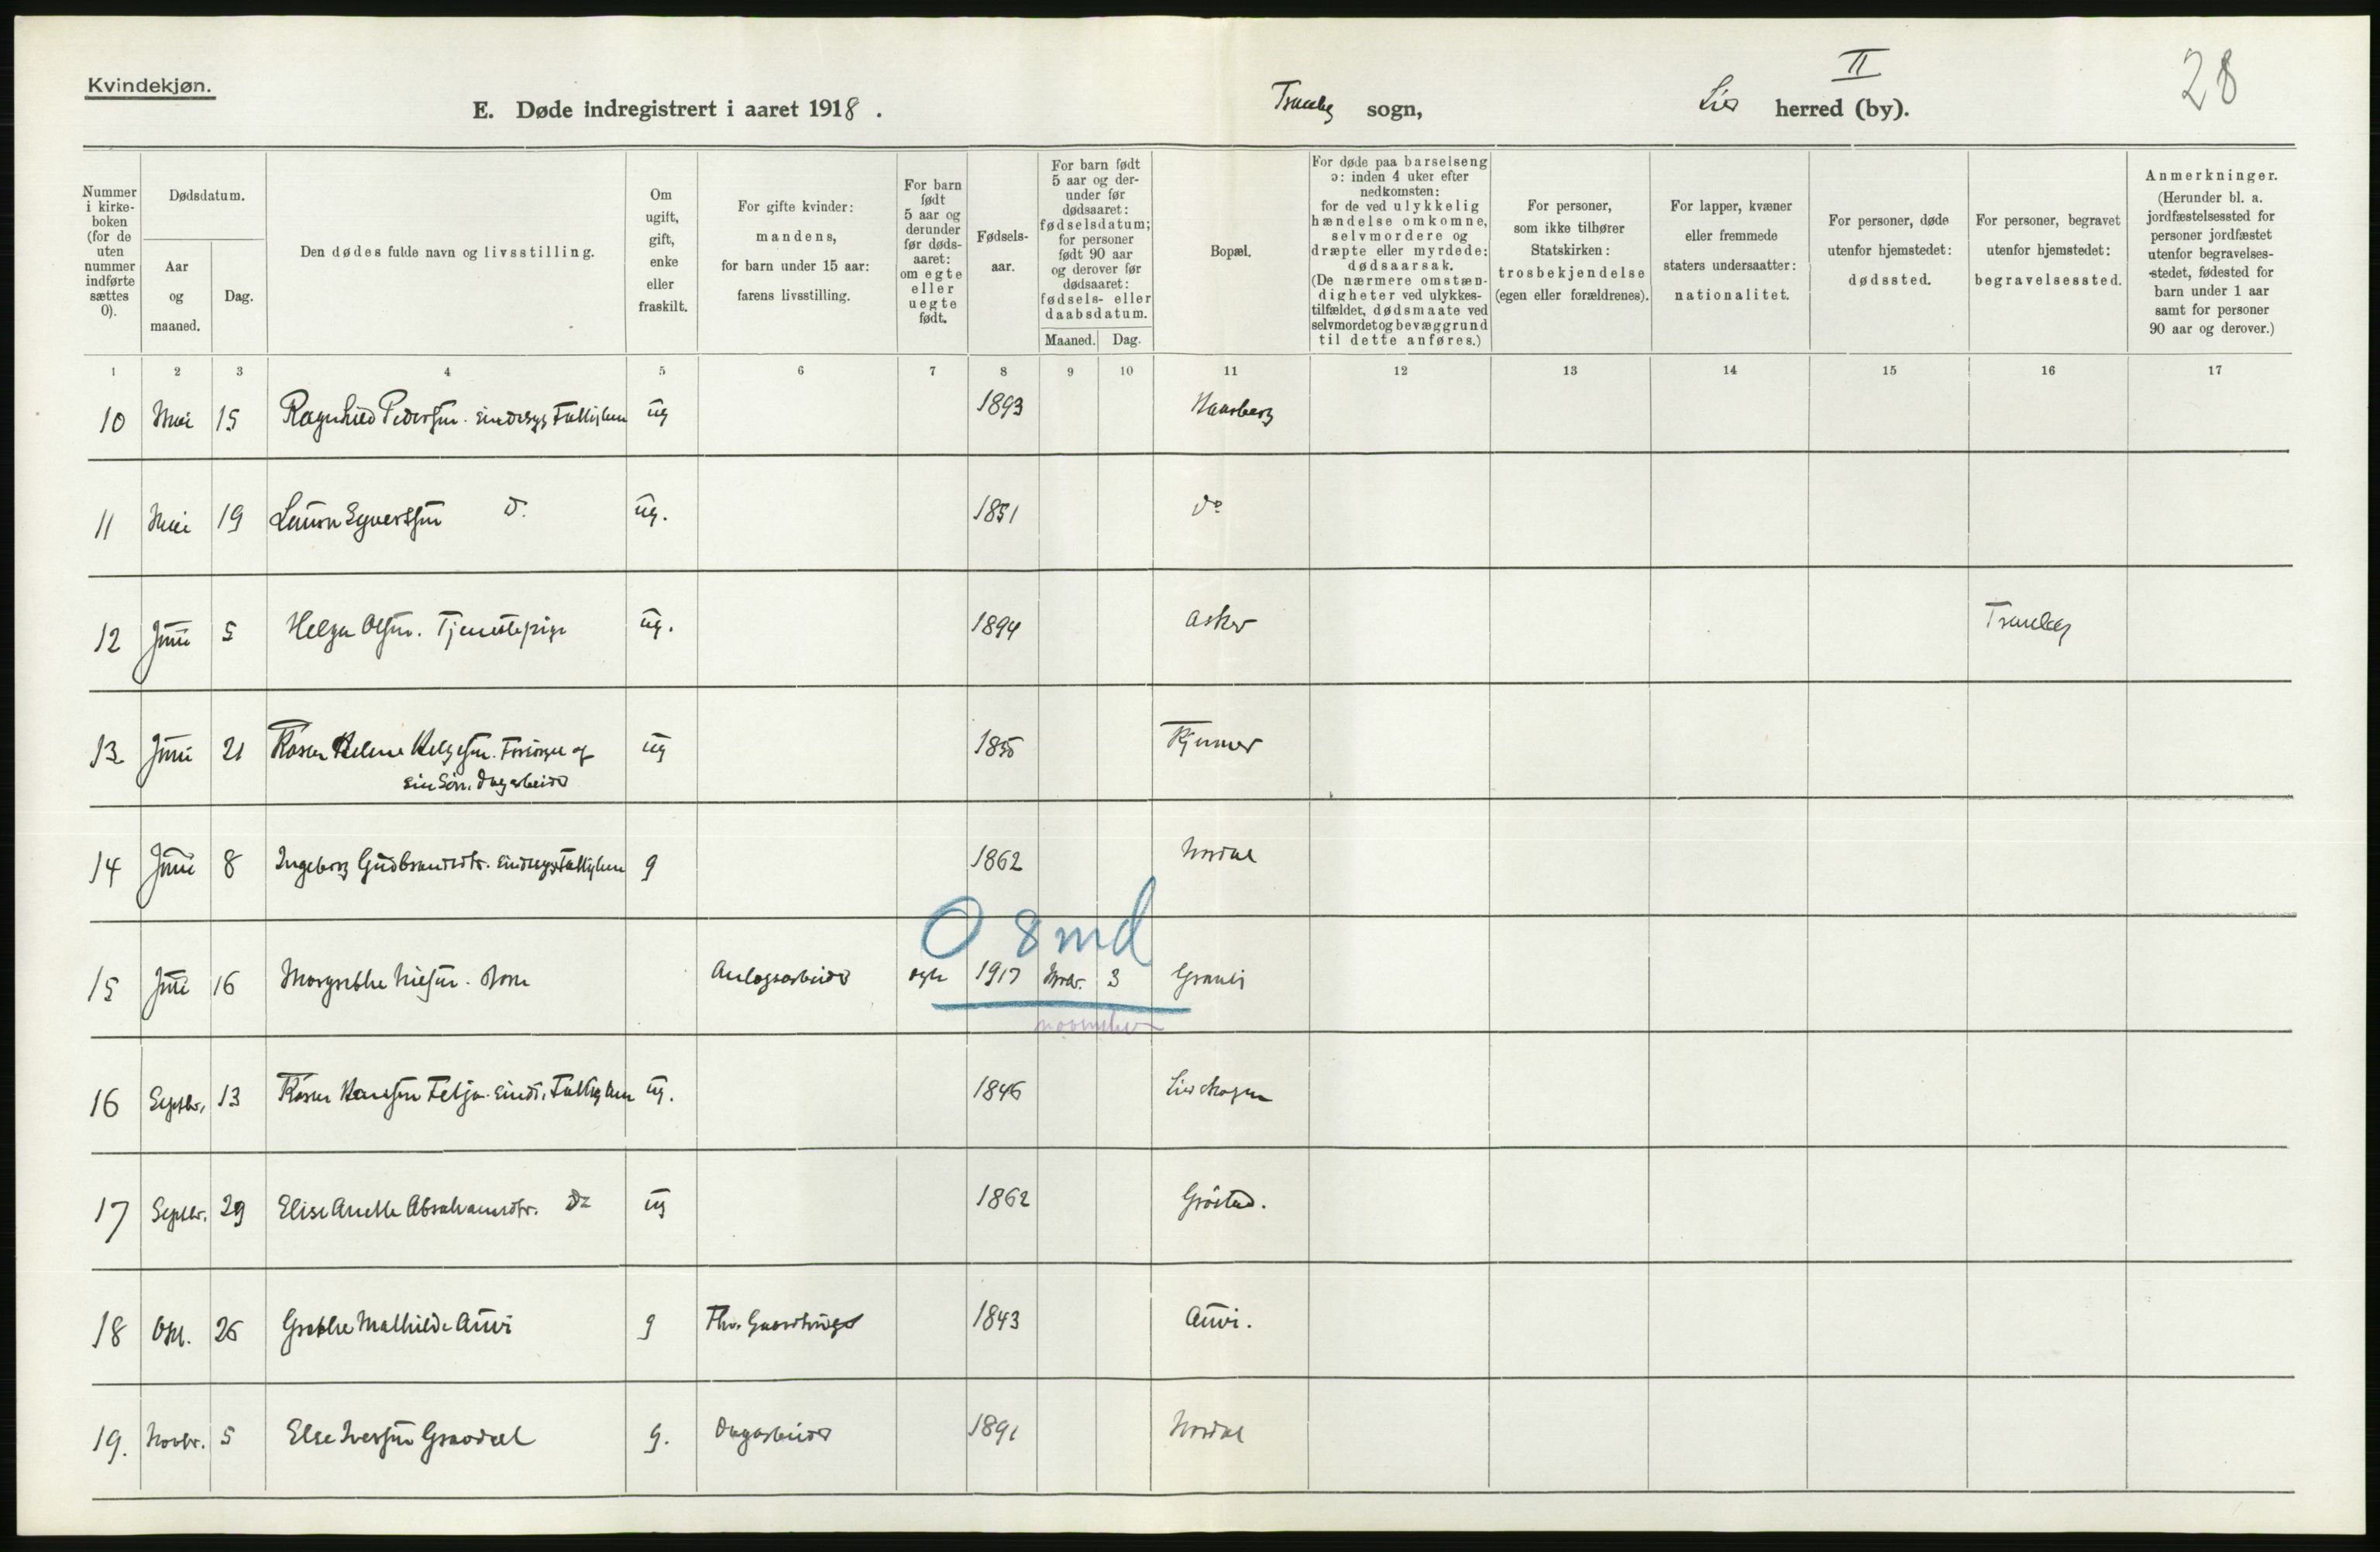 Kvindekjøn.
E. Døde indregistrert i aaret 1918.
Tranby sogn,
Lier herred (by).
II
28
Nummer i kirke-boken (for de uten nummer indførte sættes 0).
Dødsdatum.
Aar og maaned.
Dag.
Den dødes fulde navn og livsstilling.
Om ugift, gift, enke eller fraskilt.
For gifte kvinder: mandens, for barn under 15 aar: farens livsstilling.
For barn født 5 aar og derunder før døds-aaret: om egte eller uegte født.
Fødsels-aar.
For barn født 5 aar og der-under før dødsaaret: fødselsdatum; for personer født 90 aar og derover før dødsaaret: fødsels- eller daabsdatum.
Maaned. Dag.
Bopæl.
For døde paa barselseng ɔ: inden 4 uker efter nedkomsten: for de ved ulykkelig hændelse omkomne, selvmordere og dræpte eller myrdede: dødsaarsak. (De nærmere omstæn-digheter ved ulykkes-tilfældet, dødsmaate ved selvmordet og bevæggrund til dette anføres.)
For personer, som ikke tilhører Statskirken: trosbekjendelse (egen eller forældrenes).
For lapper, kvæner eller fremmede staters undersaatter: nationalitet.
For personer, døde utenfor hjemstedet: dødssted.
For personer, begravet utenfor hjemstedet: begravelsessted.
Anmerkninger. (Herunder bl. a. jordfæstelsessted for personer jordfæstet utenfor begravelses-stedet, fødested for barn under 1 aar samt for personer 90 aar og derover.)
1 2 3 4 5 6 7 8 9 10 11 12 13 14 15 16 17
10 Mai 15 Ragnhild Pedersen. Sindssyg Fattiglem ug 1893
11 Mai 19 Laura Syversen D. ug. 1851 do
12 Juni 5 Helga Olsen. Tjenestepige ug. 1894 Asker Tranby
13 Juni 21 Karen Helene Helgesen. Forsørget af ug
sin Søn. Dagarbeider
14 Juni 8 Ingeborg Gudbrandsdtr. Sindssyg Fattiglem g 1862
O 8 md
15 Juli 16 Margrethe Nielsen. Barn Anlægsarbeider egte 1917 Novbr. 3
november
16 Septbr. 13 Karen Hansen Sinds. Fattiglem ug. 1846 Lierskogen
17 Septbr. 29 Elise Anette Abrahamsdtr. Do ug 1862
18 Okt. 26 Grethe Mathilde g Fhv. Gaardbruger 1843
19. Novbr. 5 Else Iversen g. Dagarbeider 1891